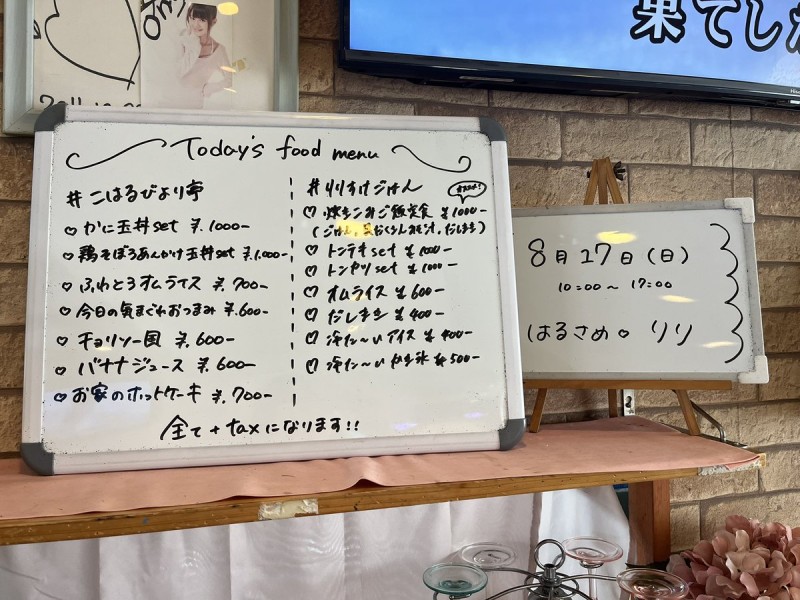 果てした
Today's food menu
#こはるびより亭
♡かに玉丼set ¥.1000-
♡鶏そぼろあんかけ玉丼set ¥.1000-
♡ふわとろオムライス ¥.700-
♡今日の気まぐれおつまみ ¥.600-
♡チョリソー風 ¥.600-
♡バナナジュース ¥.600-
♡お家のホットケーキ ¥.700-
#りりすけごはん
♡ ¥1000-
♡トンテキset ¥1000-
♡トンカツset ¥1000-
♡オムライス ¥600-
♡だしまき ¥400-
♡冷た〜いアイス ¥400-
♡冷た〜いかき氷 ¥500-
全て+taxになります!!
8月17日(日)
10:00〜17:00
はるさめ♡りり